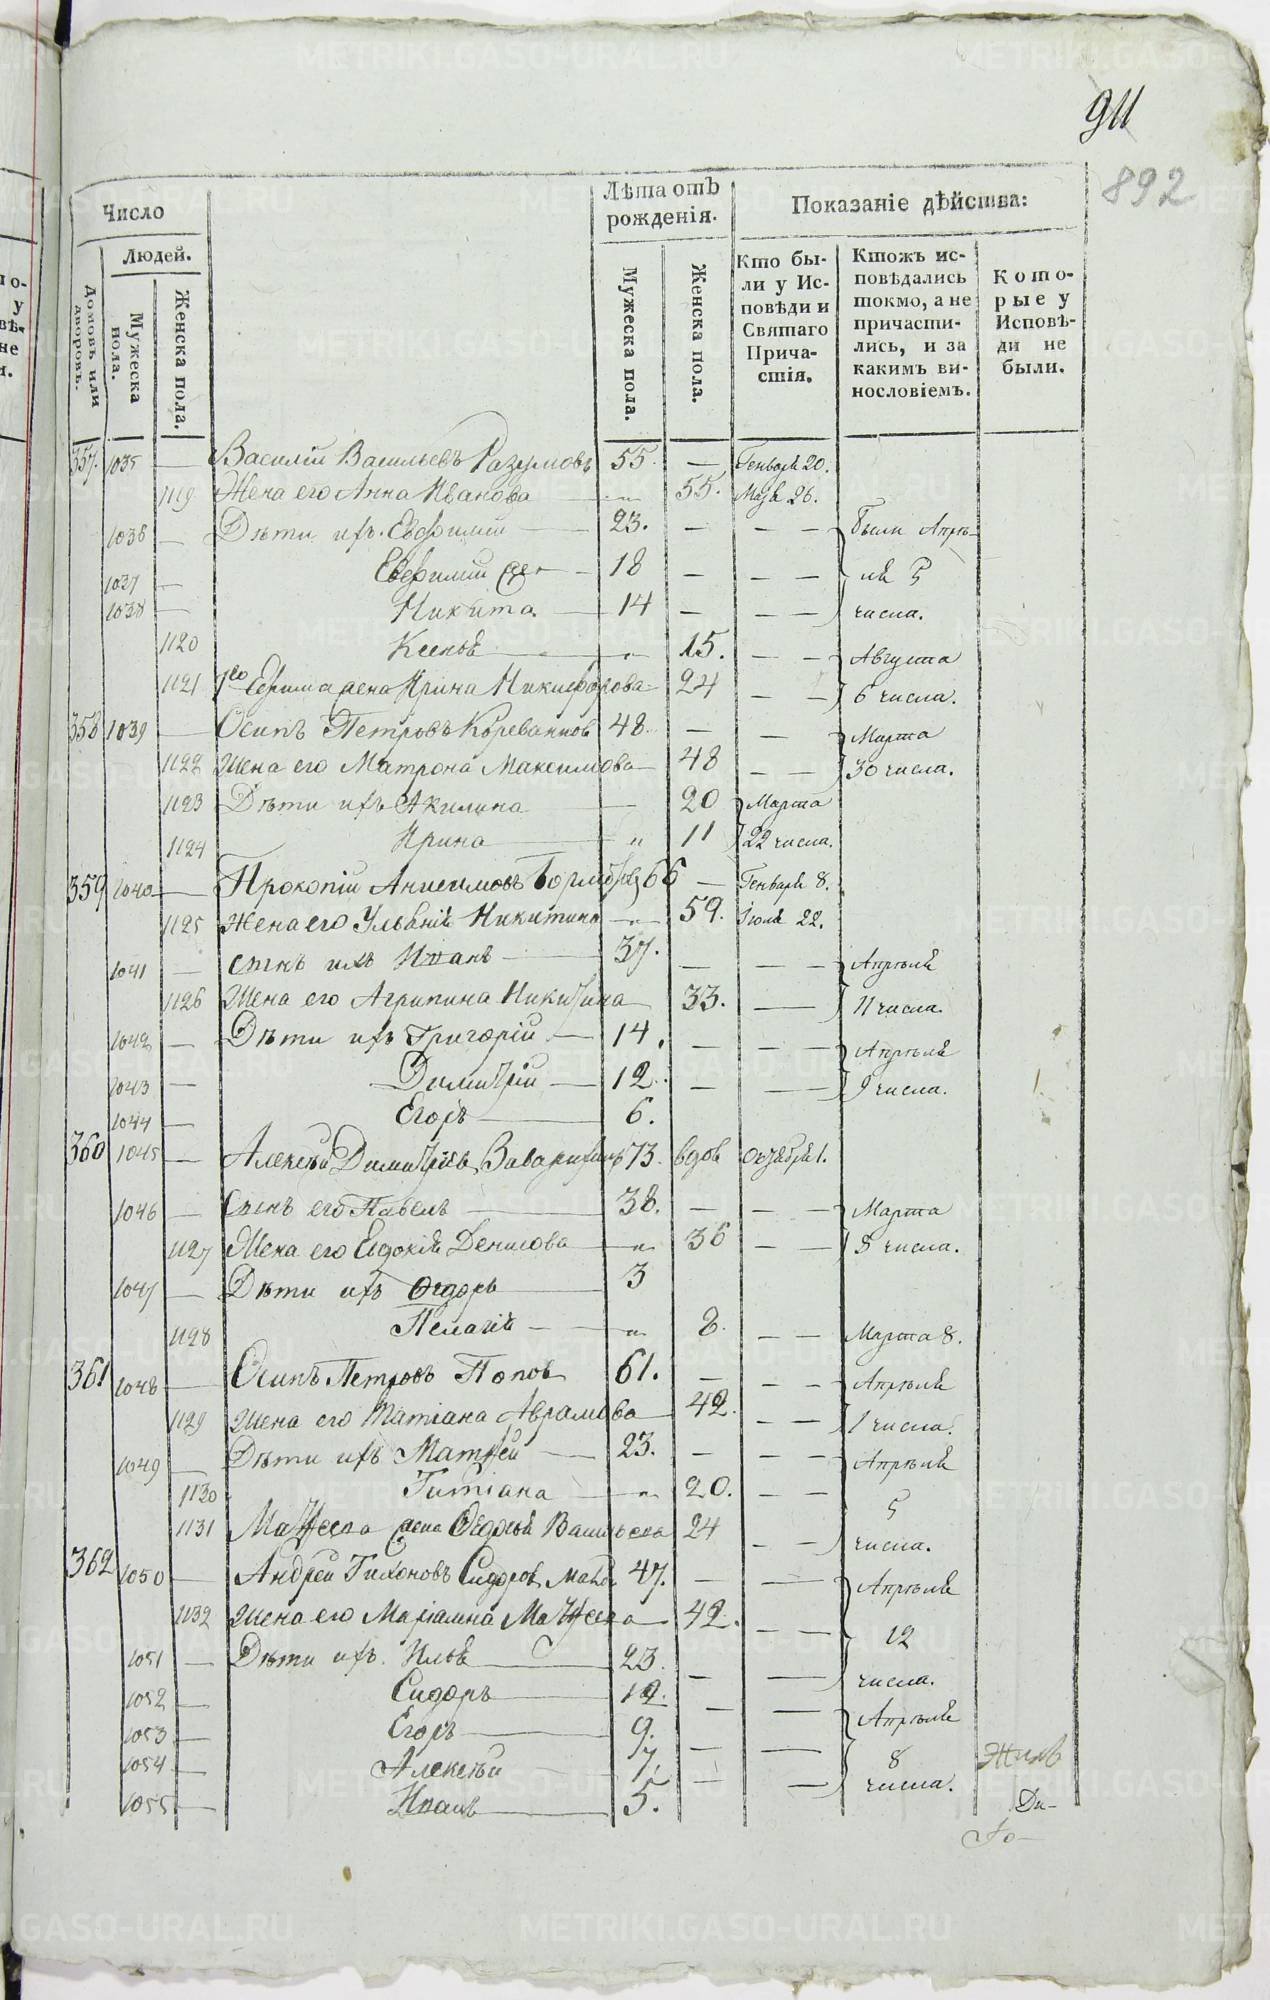 911
892
Число
Лѣта отъ рожденія.
Показаніе дѣйства:
Людей.
Домовъ или дворовъ.
Мужеска пола.
Женска пола.
Мужеска пола.
Женска пола.
Кто бы-
ли у Ис-
повѣди и
Святаго
Прича-
стія.
Ктожъ ис-
повѣдались
токмо, а не
причасти-
лись, и за
какимъ ви-
нословіемъ.
Кото-
рые у
Исповѣ-
ди не
были.
357. 1035 — Василій Васильевъ Разумовъ 55. — Генваря 20.
1119 Жена его Анна Иванова — 55. Маія 26.
1036 — Дѣти ихъ. Евфимій — 23. — — — были Апрѣ-
1037 — Евфимій — 18 — — — ля 5
1038 — Никита — 14 — — — числа.
1120 Ксенія — 15. — — Августа
1121 Ефима жена Ирина Никифорова 24 — — 6 числа.
358 1039 — Осипъ Петровъ 48. — — Марта
1122 Жена его Матрона Максимова — 48 — — 30 числа.
1123 Дѣти ихъ Акилина — 20 Марта
1124 Ирина — 11 22 числа.
359 1040 — Прокопій Анисимовъ 66 — Генваря 8.
1125 Жена его Ульянія Никитина — 59. Іюля 22.
1041 — сынъ ихъ Иванъ — 37. — — — Апрѣля
1126 Жена его Агрипина Никитина — 33. — 11 числа.
1042 — Дѣти ихъ Григорій — 14. — — — Апрѣля
1043 — Димитрій — 12. — — — 9 числа.
1044 — Егоръ — 6.
360 1045 — Алексѣй Димитріевъ 73. вдов Октября 1.
1046 — Сынъ его Павелъ — 38. — — — Марта
1127 Жена его Евдокія Денисова — 36 — — 8 числа.
1047 — Дѣти ихъ Ѳедоръ — 3
1128 Пелагія — 8. — — Марта 8.
361 1048 — Осипъ Петровъ Попов 61. — — — Апрѣля
1129 Жена его Татіана Аврамова — 42. — — 1 числа.
1049 — Дѣти ихъ Матѳей — 23. — — — Апрѣля
1130 Татіана — 20. — — 5
1131 Матѳеева жена Ѳедосья Васильева 24 — — числа.
362 1050 — Андрей Тихоновъ Сидоров 47. — — Апрѣля
1132 Жена его Маріамна Матѳеева — 42. — — 12
1051 — Дѣти ихъ. Илья — 23. — — числа.
1052 — Сидоръ — 12. — — Апрѣля
1053 — Егоръ — 9. — — 8
1054 — Алексѣй — 7. — — числа.
1055 — Иванъ — 5.
Ди-
METRIKI.GASO-URAL.RU